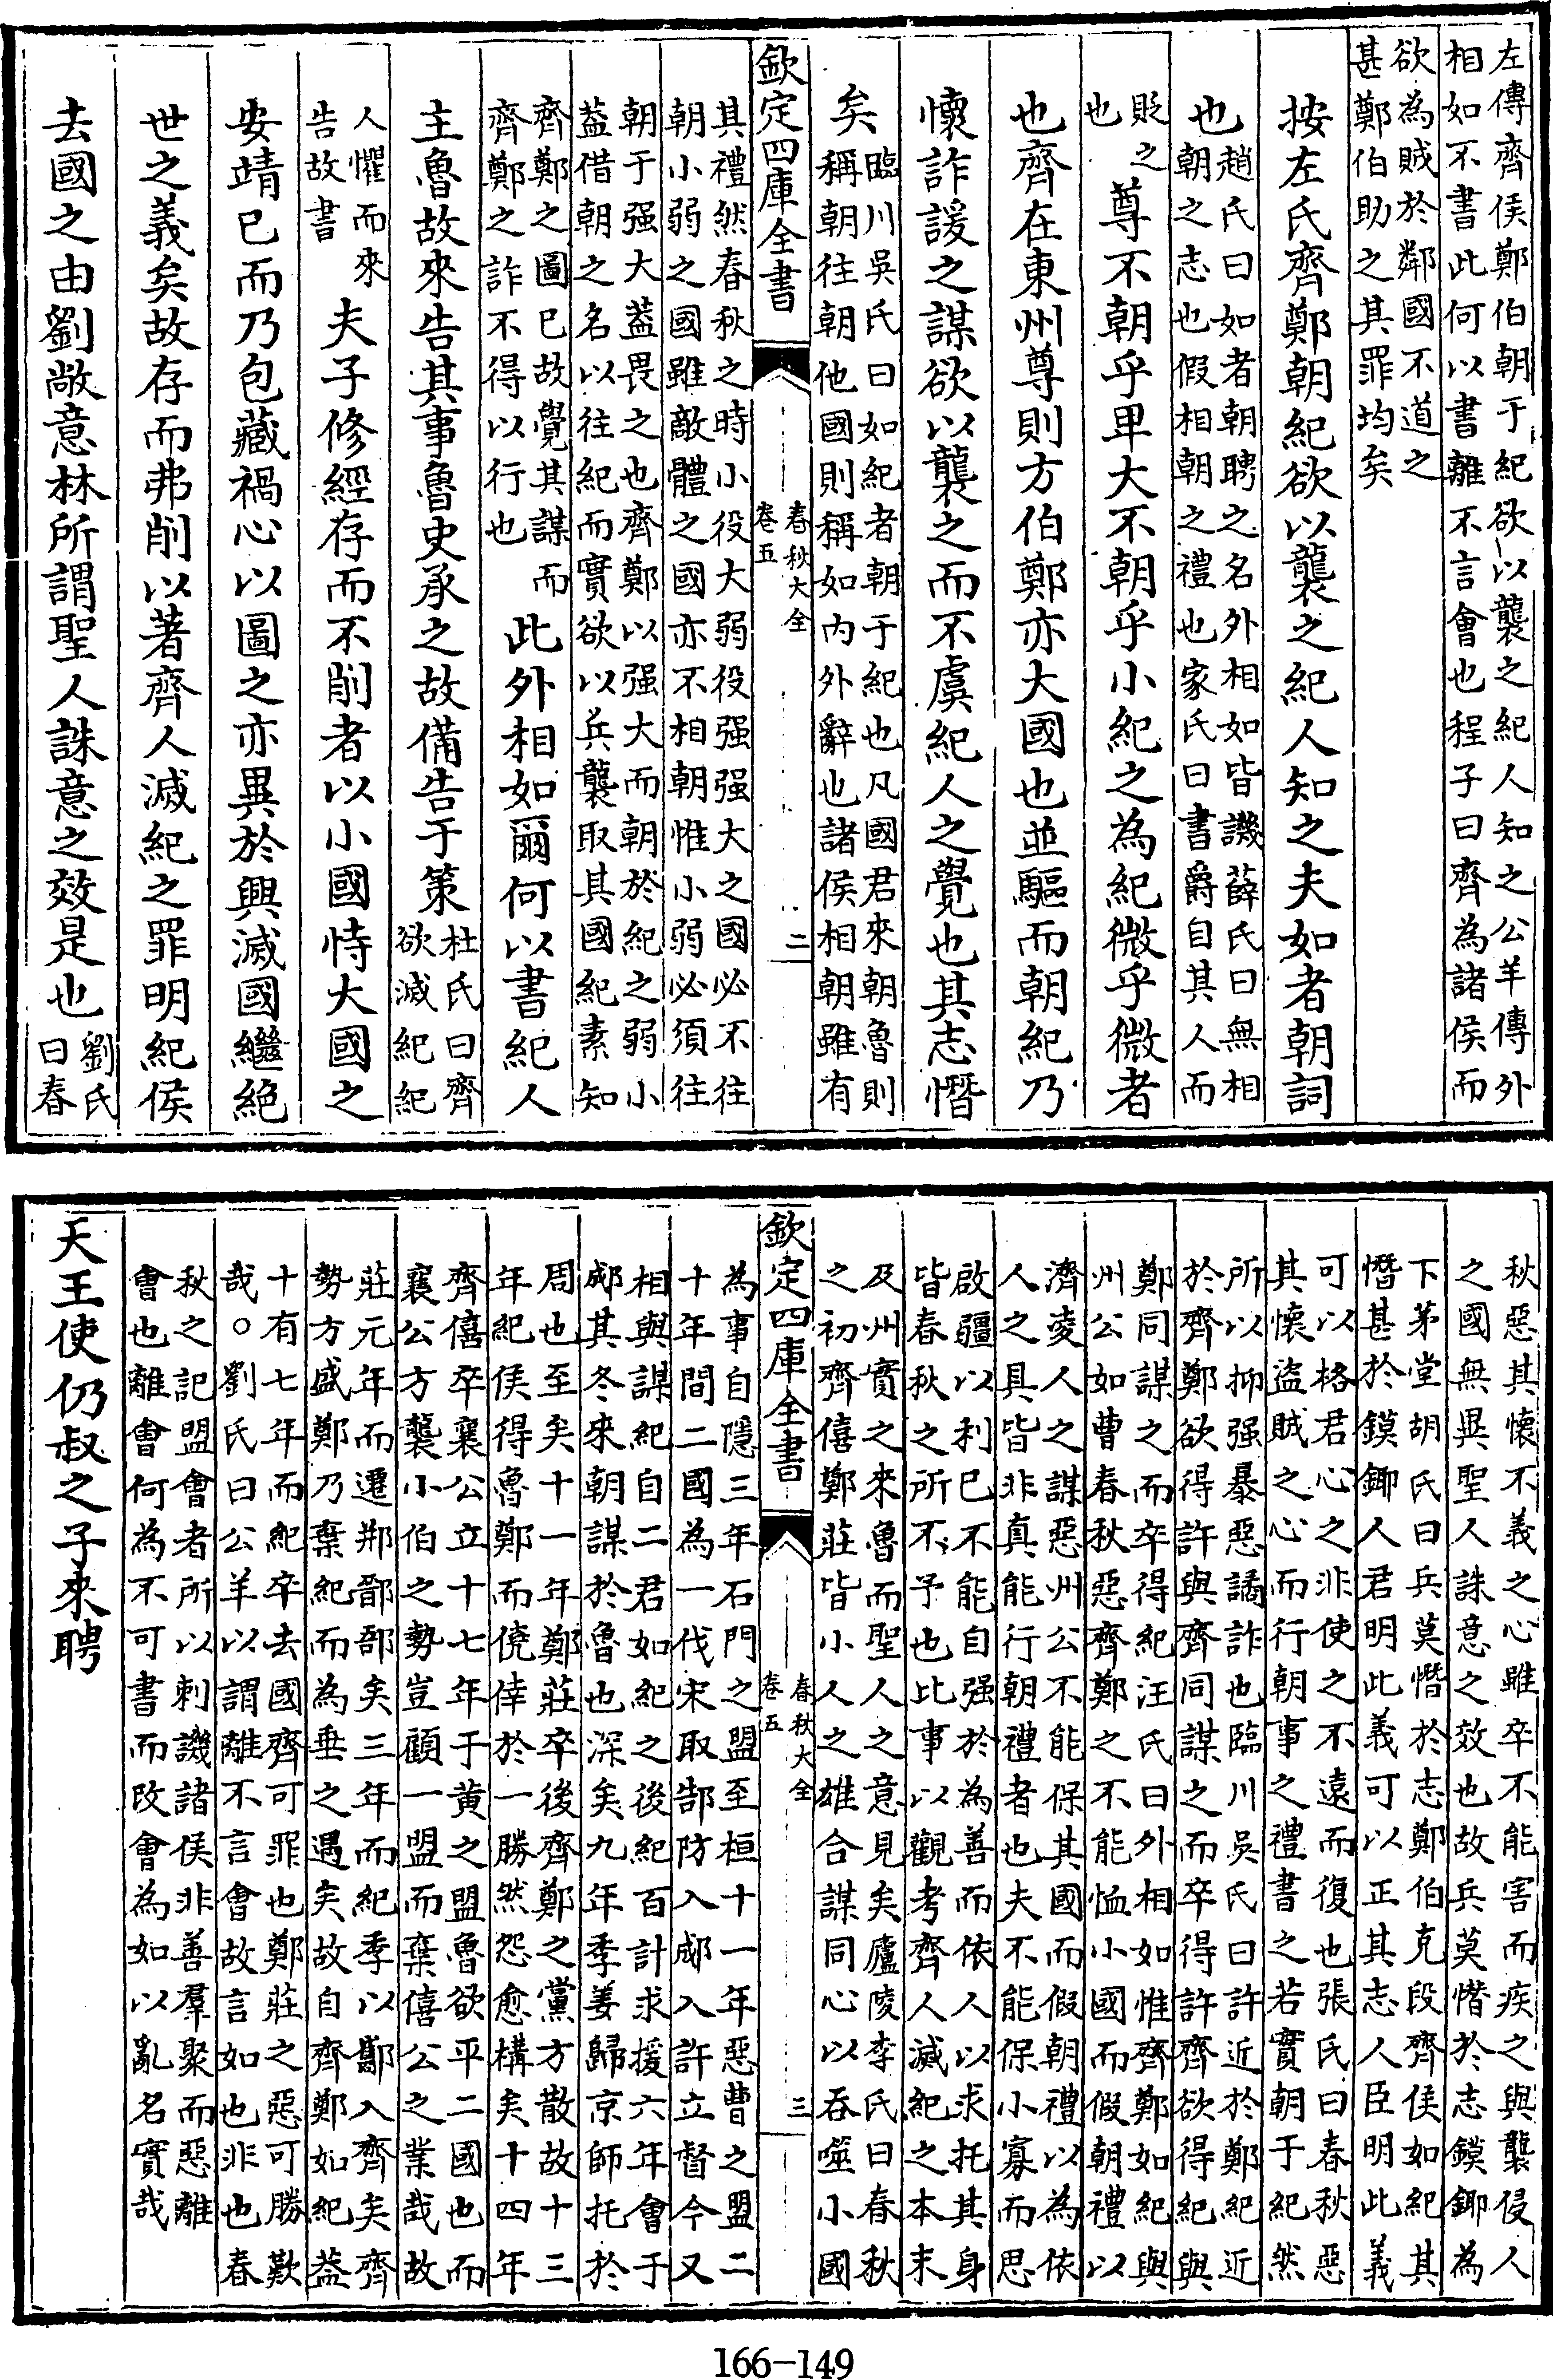 左傳齊侯鄭伯朝于紀欲以襲之紀人知之公羊傳外
相如不書此何以書離不言會也程子曰齊為諸侯而
欲為賊於鄰國不道之
甚鄭伯助之其罪均矣
按左氏齊鄭朝紀欲以襲之紀人知之夫如者朝詞
也
趙氏曰如者朝聘之名外相如皆譏薛氏曰無相
朝之志也假相朝之禮也家氏曰書爵自其人而
貶之
也
尊不朝乎卑大不朝乎小紀之為紀微乎微者
也齊在東州尊則方伯鄭亦大國也並驅而朝紀乃
懷詐諼之謀欲以襲之而不虞紀人之覺也其志憯
矣
臨川吳氏曰如紀者朝于紀也凡國君來朝魯則
稱朝往朝他國則稱如内外辭也諸侯相朝雖有
欽定四庫全書
春秋大全
卷五
二
其禮然春秋之時小役大弱役强强大之國必不往
朝小弱之國雖敵體之國亦不相朝惟小弱必須往
朝于强大葢畏之也齊鄭以强大而朝於紀之弱小
葢借朝之名以往紀而實欲以兵襲取其國紀素知
齊鄭之圖已故覺其謀而
齊鄭之詐不得以行也
此外相如爾何以書紀人
主魯故來告其事魯史承之故備告于策
杜氏曰齊
欲滅紀紀
人懼而來
告故書
夫子修經存而不削者以小國恃大國之
安靖已而乃包藏禍心以圖之亦異於興滅國繼絶
世之義矣故存而弗削以著齊人滅紀之罪明紀侯
去國之由劉敞意林所謂聖人誅意之效是也
劉氏
曰春
秋惡其懷不義之心雖卒不能害而疾之與襲侵人
之國無異聖人誅意之效也故兵莫憯於志鏌鎁為
下茅堂胡氏曰兵莫憯於志鄭伯克段齊侯如紀其
憯甚於鏌鎁人君明此義可以正其志人臣明此義
可以格君心之非使之不遠而復也張氏曰春秋惡
其懷盜賊之心而行朝事之禮書之若實朝于紀然
所以抑强暴惡譎詐也臨川吳氏曰許近於鄭紀近
於齊鄭欲得許與齊同謀之而卒得許齊欲得紀與
鄭同謀之而卒得紀汪氏曰外相如惟齊鄭如紀與
州公如曹春秋惡齊鄭之不能恤小國而假朝禮以
濟凌人之謀惡州公不能保其國而假朝禮以為依
人之具皆非真能行朝禮者也夫不能保小寡而思
啟疆以利巳不能自强於為善而依人以求托其身
皆春秋之所不予也比事以觀考齊人滅紀之本末
及州實之來魯而聖人之意見矣廬陵李氏曰春秋
之初齊僖鄭莊皆小人之雄合謀同心以吞噬小國
欽定四庫全書
春秋大全
卷五
三
為事自隱三年石門之盟至桓十一年惡曹之盟二
十年間二國為一伐宋取郜防入郕入許立督今又
相與謀紀自二君如紀之後紀百計求援六年會于
郕其冬來朝謀於魯也深矣九年季姜歸京師托於
周也至矣十一年鄭莊卒後齊鄭之黨方散故十三
年紀侯得魯鄭而僥倖於一勝然怨愈構矣十四年
齊僖卒襄公立十七年于黄之盟魯欲平二國也而
襄公方襲小伯之勢豈顧一盟而棄僖公之業哉故
莊元年而遷郱鄑郚矣三年而紀季以酅入齊矣齊
勢方盛鄭乃棄紀而為垂之遇矣故自齊鄭如紀葢
十有七年而紀卒去國齊可罪也鄭莊之惡可勝歎
哉○劉氏曰公羊以謂離不言會故言如也非也春
秋之記盟會者所以刺譏諸侯非善羣聚而惡離
會也離會何為不可書而改會為如以亂名實哉
天王使仍叔之子來聘
166-149